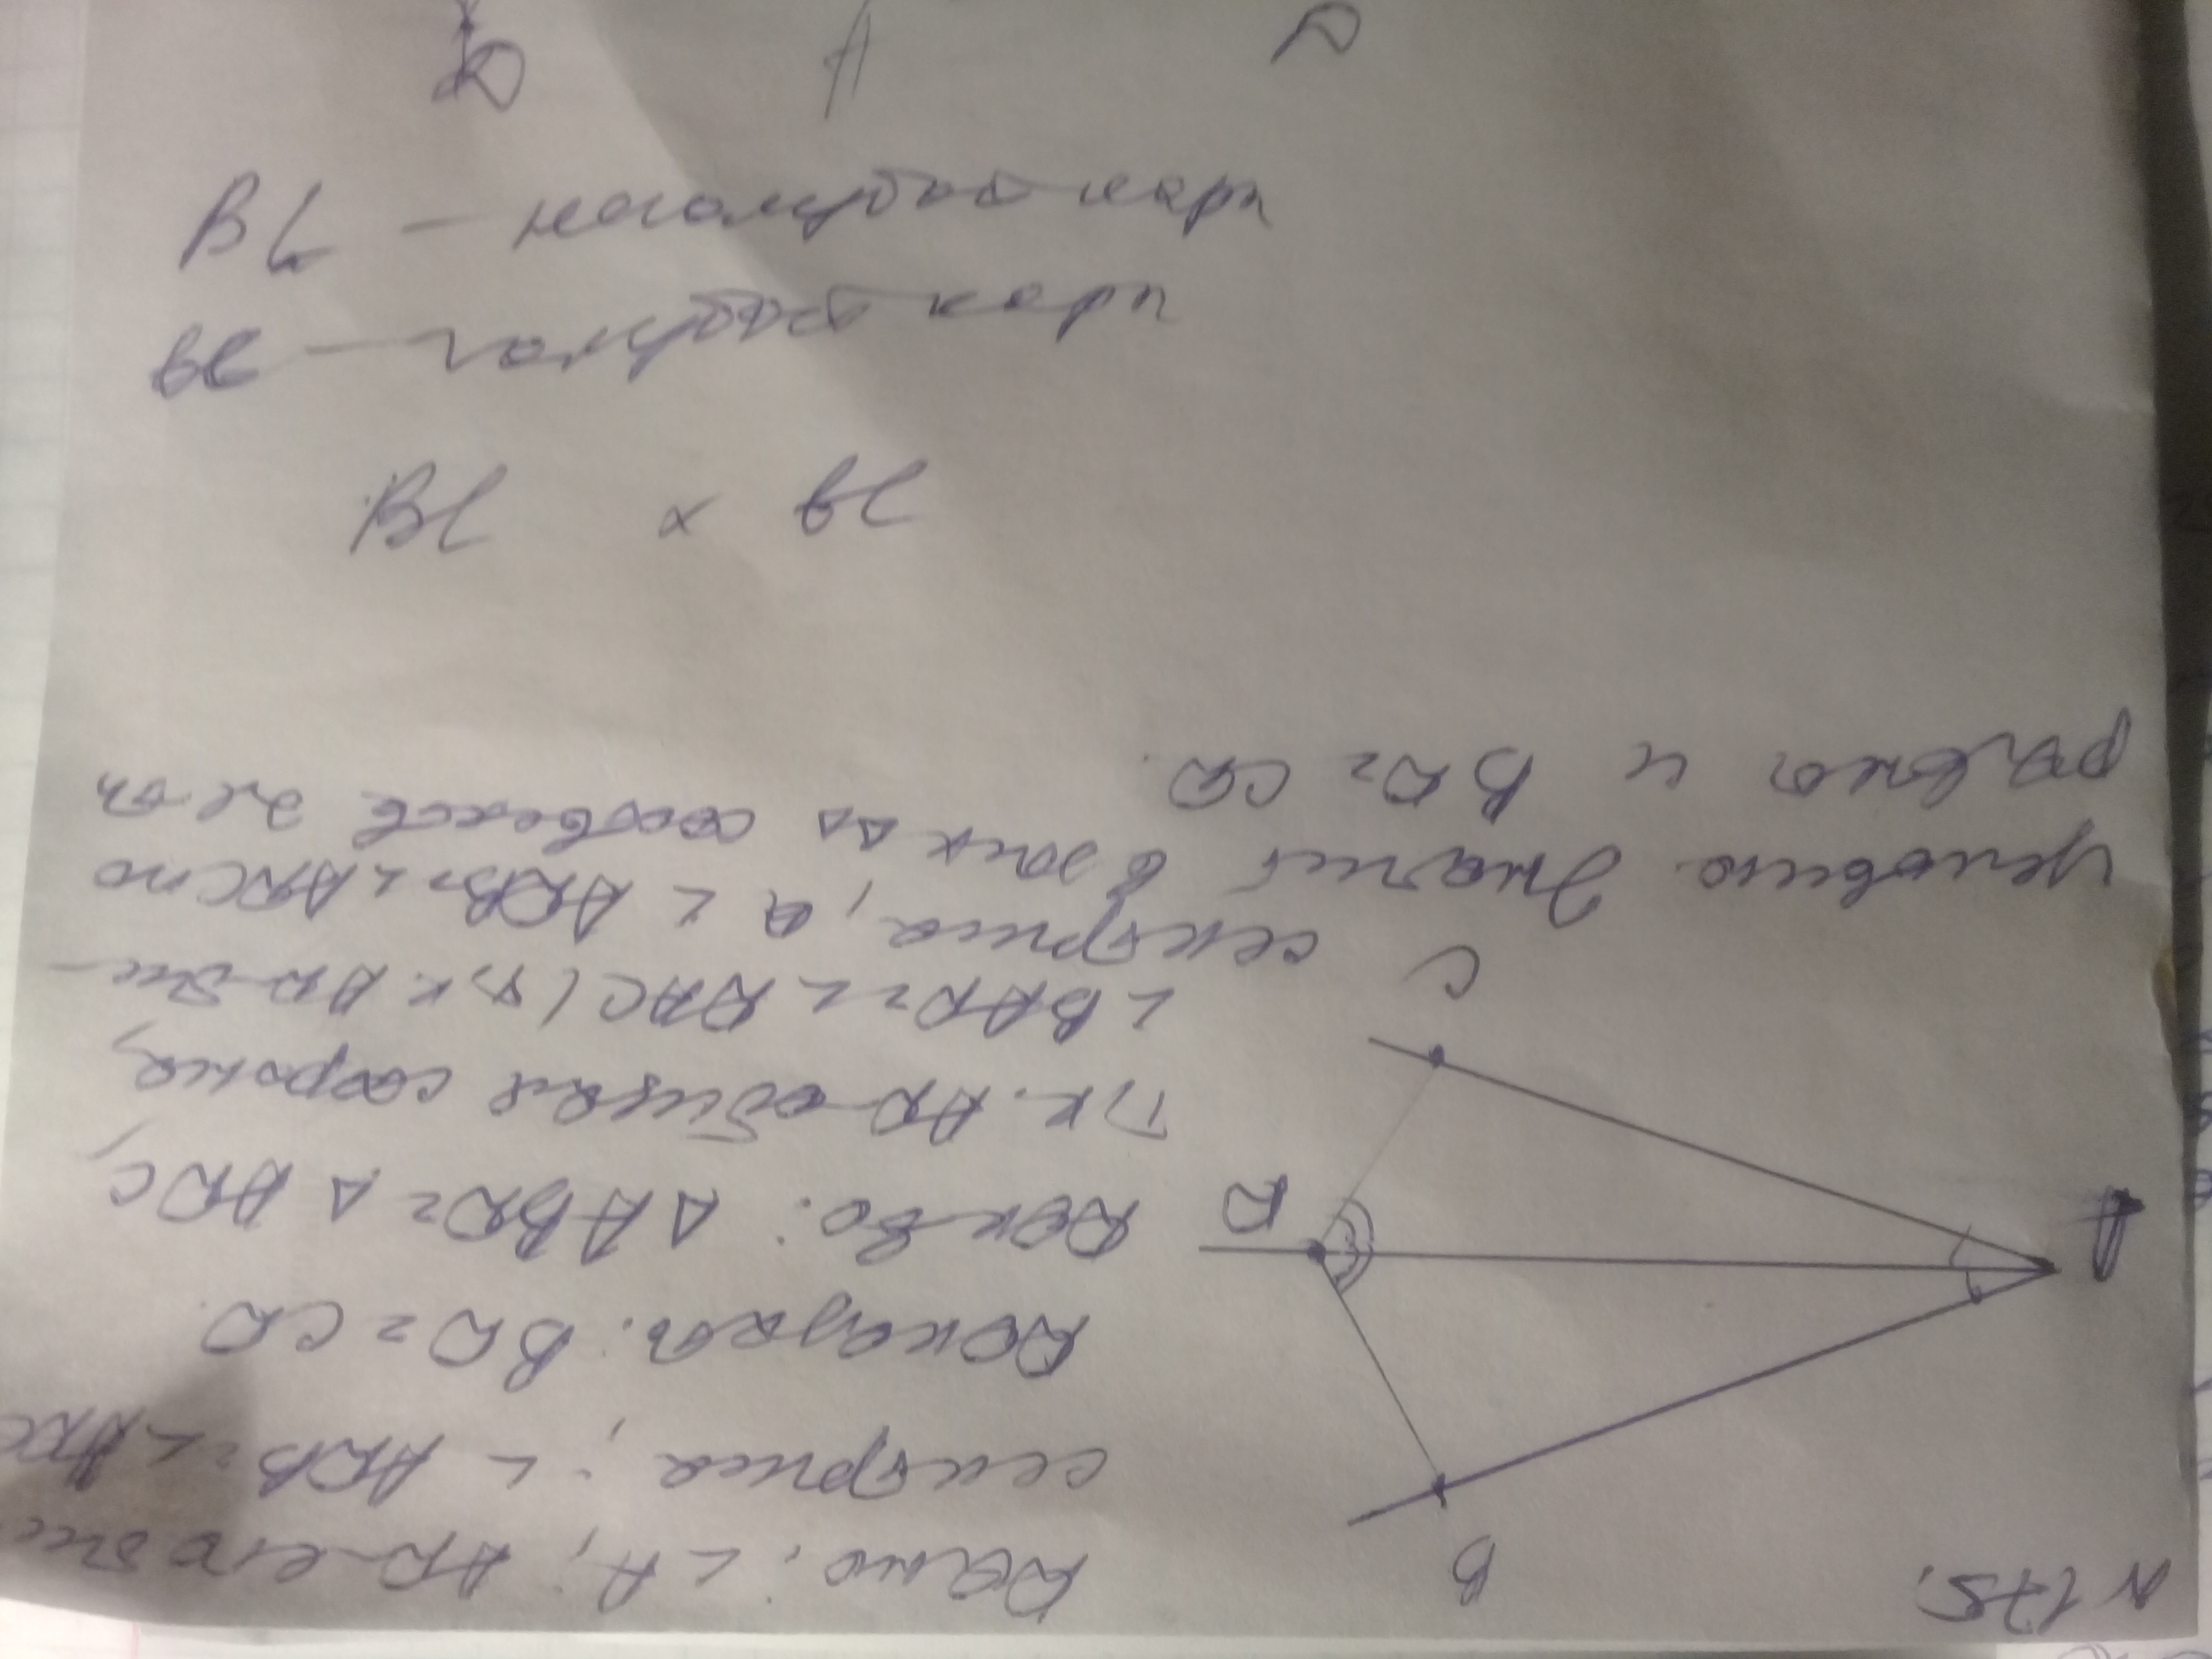 N 175.
B
A
D
C
Дано: ∠A; AD-его бис
сектриса; ∠ADB=∠ADC
Доказать: BD=CD.
Док-во: △ABD=△ADC,
т.к. AD-общая сторона,
∠BAD=∠DAC (т.к. AD-бис-
сектриса, а ∠ADB=∠ADC по
условию. Значит в этих △△ соответств эл-ты
равны и BD=CD.
A
Bl — неголубой карп
bl — голубой карп
Bl x bl